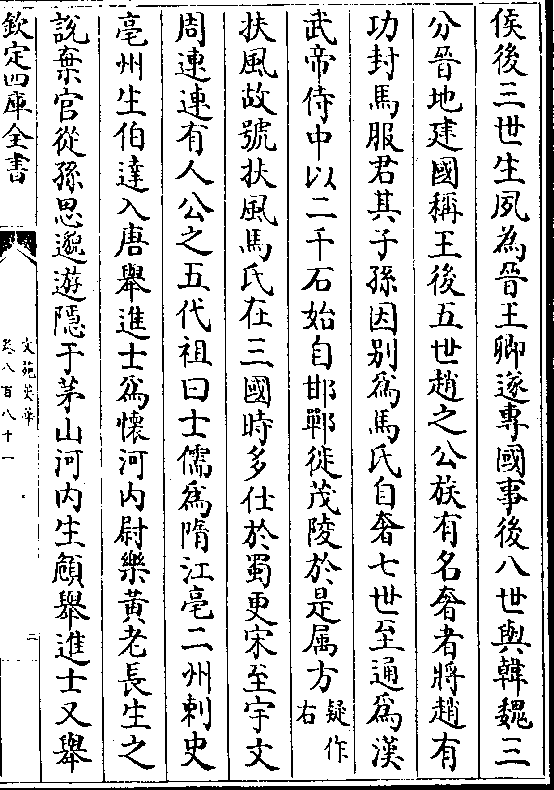 侯後三世生夙為晉王卿遂專國事後八世與韓魏三
分晉地建國稱王後五世趙之公族有名奢者將趙有
功封馬服君其子孫因别爲馬氏自奢七世至通爲漢
武帝侍中以二千石始自邯鄲徙茂陵於是属方疑作右
扶風故號扶風馬氏在三國時多仕於蜀更宋至宇文
周連連有人公之五代祖曰士儒爲隋江亳二州刺史
亳州生伯達入唐舉進士爲懷河内尉樂黄老長生之
說棄官從孫思邈遊隱于茅山河内生頠舉進士又舉
欽定四庫全書
文苑英華
卷八百八十一
二